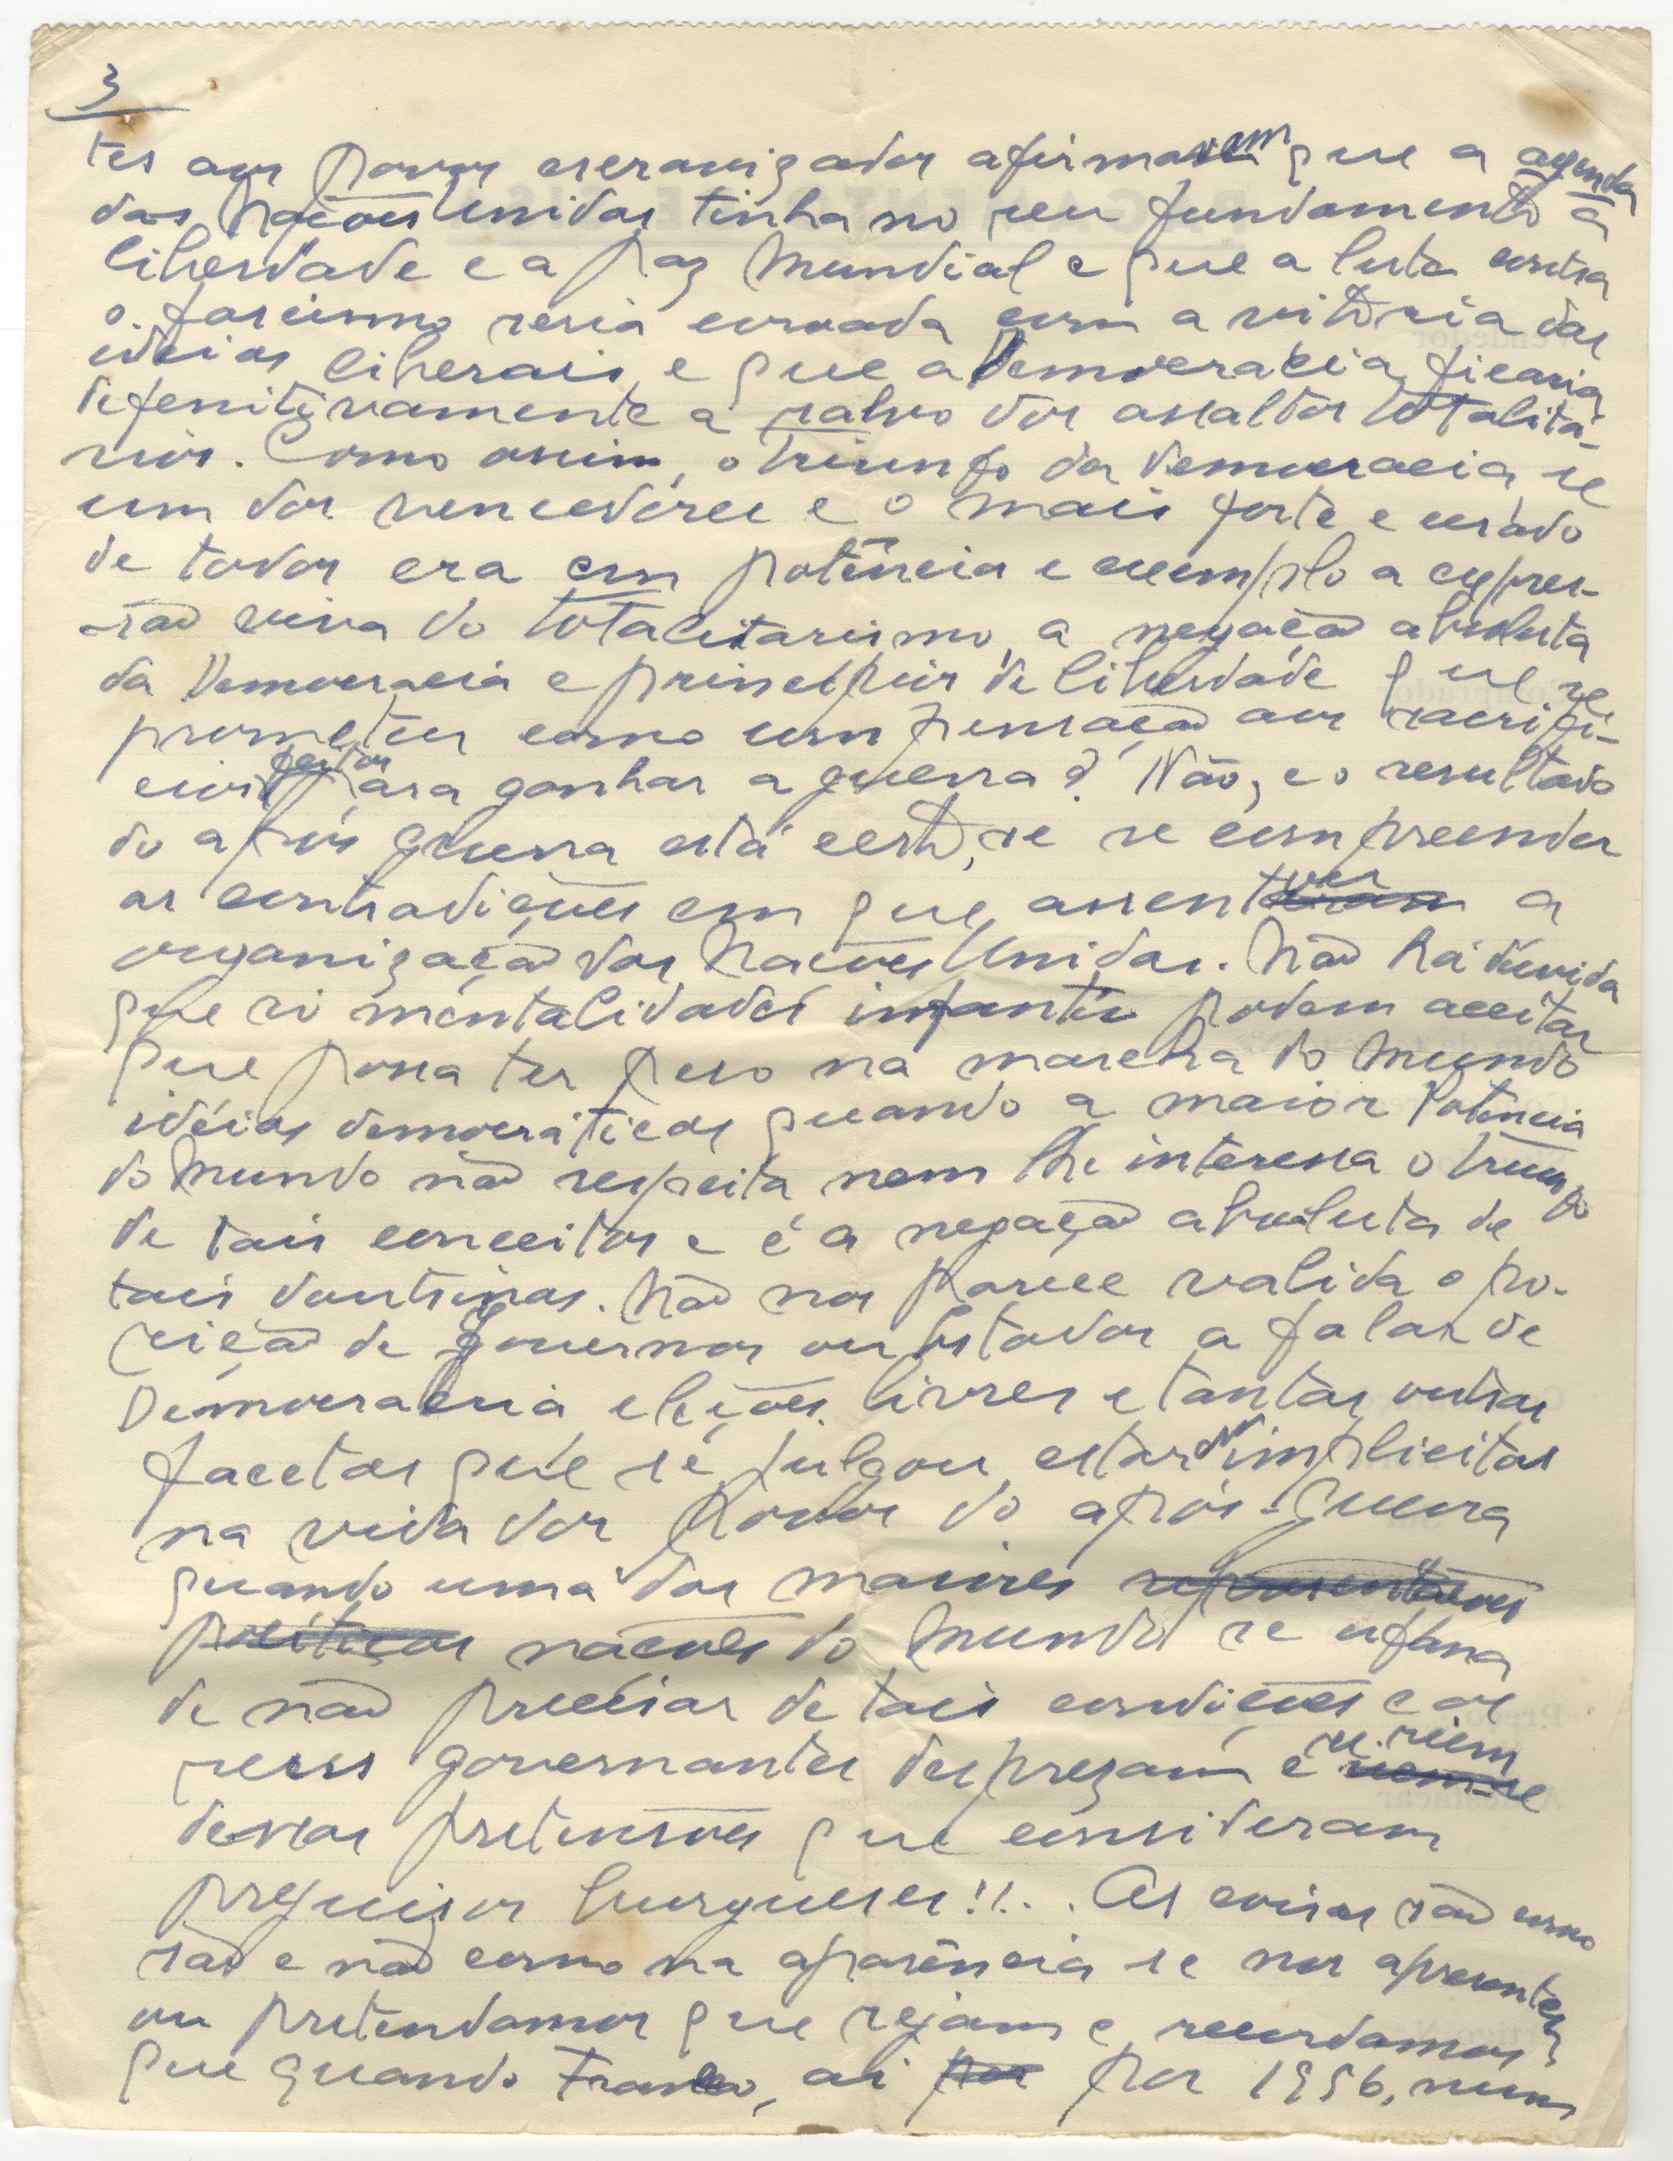 3
tes aos povos escravizados afirmavam que a agenda
das Nações Unidas tinha no seu fundamento a
liberdade e a paz Mundial e que a luta contra
o fascismo seria coroada com a vitória das
idéias liberais, e que a Democracia ficaria
defenitivamente a salvo dos assaltos totalitá-
rios. Como assim, o triunfo da democracia, se
um dos vencedores e o mais forte e
de todos era em potência e exemplo a expres-
são viva do totalitarismo, a negação absoluta
da Democracia e principios de liberdade que se
prometeu como compensação aos sacrifi-
cios feitos para ganhar a guerra? Não, e o resultado
do após guerra está certo, se se compreender
as contradições em que assentou a
organização das Nações Unidas. Não há dúvida
que só mentalidades infantis podem aceitar
que possa ter peso na marcha do Mundo
idéias democráticas quando a maior Potência
do Mundo não respeita nem lhe interessa o triunfo
de tais conceitos e é a negação absoluta de
tais doutrinas. Não nos parece valida a po-
sição de governos ou Estados a falar de
Democracia eleições livres e tantas outras
facetas que se julgou estarem implicitas
na vida dos Povos do após-guerra
quando uma das maiores representações
políticas nações do Mundo se ufana
de não precisar de tais condições e os
seus governantes desprezam e se riem
dessas pretensões que consideram
prejuizos burgueses!!... As coisas são como
são e não como na aparência se nos apresentem
ou pretendamos que sejam e recordamos
que quando Franco, ai por por 1956, num